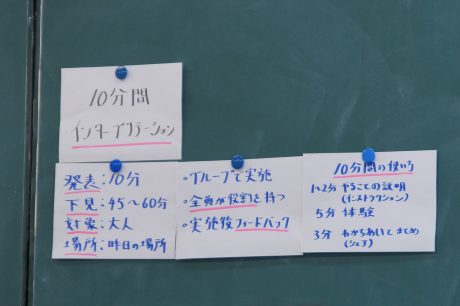 10分間
インタープリテーション
発表：10分
下見：45～60分
対象：大人
場所：昨日の場所
・グループで実施
・全員が役割を持つ
・実施後フィードバック
10分間の使い方
1~2分 やることの説明
(インストラクション)
5分 体験
3分 わかちあいとまとめ
(シェア)